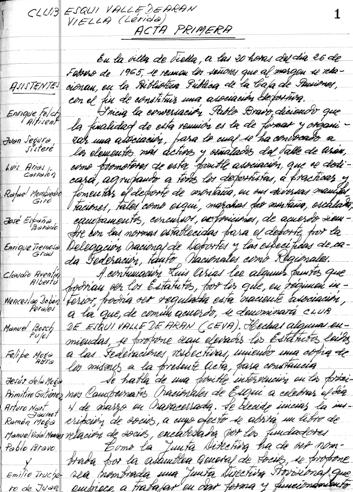 CLUB ESQUI VALLE DE ARAN
VIELLA (Lérida)
1
ACTA PRIMERA
En la villa de Viella, a las 20 horas del día 26 de
Febrero de 1965, se reunen los señores que al margen se rela-
cionan, en la Biblioteca Pública de la Caja de Pensiones,
con el fin de constituir una asociación deportiva.
Inicia la conversación Pablo Bravo, diciendo que
la finalidad de esta reunión es la de formar y organi-
zar una asociación, para lo cual se ha convocado a
los elementos más activos y del Valle de Arán,
como promotores de esta asociación, que se dedi-
cará, agrupando a todos los deportistas, a practicar y
fomentar el deporte de montaña, en sus diversas manifes-
taciones, tales como esquí, marchas por montaña, escalada,
campamentos, concursos, excursiones, de acuerdo siem-
pre con las normas establecidas para el deporte, por la
Delegación Nacional de Deportes y las específicas de ca-
da Federación, tanto Nacionales como Regionales.
A continuación Luis Arias lee algunos puntos que
podrían ser los Estatutos, por los que, en régimen in-
terior, podría ser regulada esta naciente asociación,
a la que, de común acuerdo, se denominará CLUB
DE ESQUI VALLE DE ARAN (CEVA). Hechas algunas en-
miendas, se propone sean elevados los Estatutos leidos
a las Federaciones respectivas, uniendo una copia de
los mismos a la presente Acta, para constancia
Se habla de una posible intervención en los próxi-
mos Campeonatos Nacionales de Esquí a celebrar el día
4 de marzo en Navacerrada. Se decide iniciar la ins-
cripción de socios, a cuyo efecto se abrirá un libro de
relación de socios, encabezada por los fundadores
Como la Junta Directiva ha de ser nom-
brada por la Asamblea General de socios, se propone
sea nombrada una Junta Directiva Provisional que
empiece a trabajar en dar forma y funcionamiento
ASISTENTES
Enrique Faleh
Altisent
Juan Segura
Sistere
Luis Arias
Rafael
Giró
José España
Enrique
Grau
Claudio Aventin
Alberto
Perales
Manuel Bosch
Pujol
Felipe Meya
Jesús de la Mega
Primitivo Gutierrez
Arturo
Ramón Mega
Manuel
Pablo Bravo
y
Emilio
de Juan